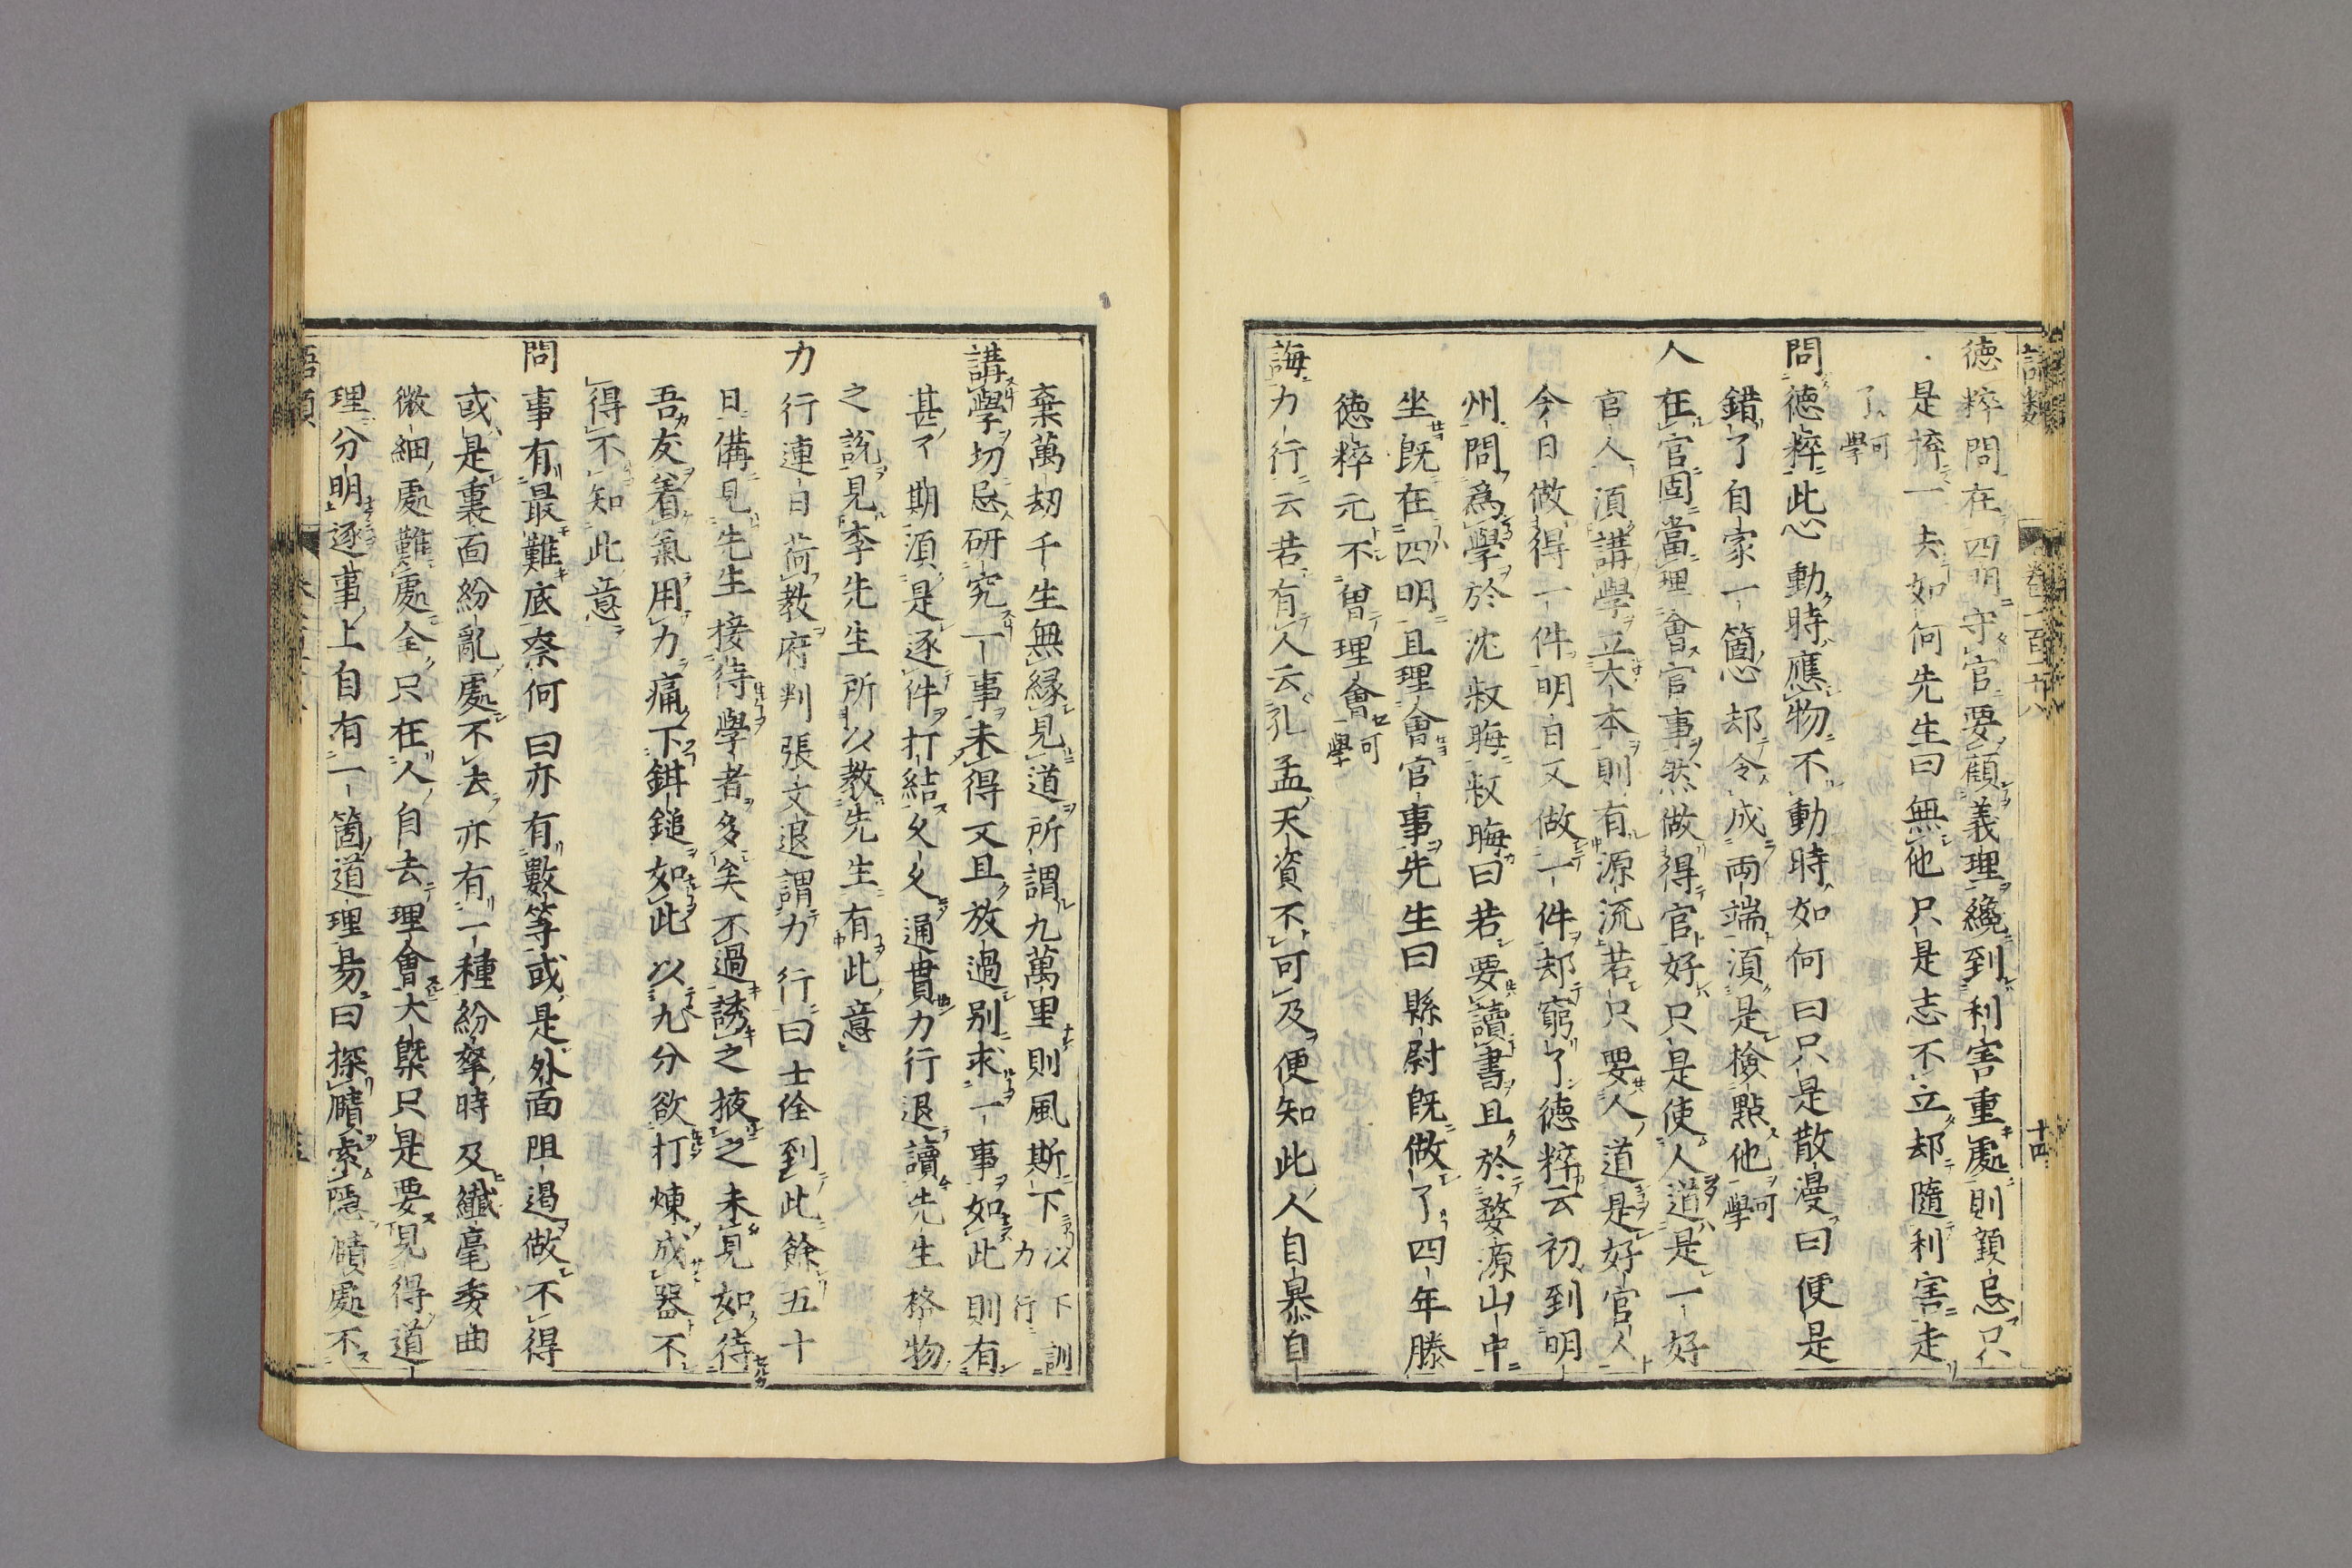 德粹問在四明守官要顧義理纔到利害重處則顧忌只
是拚一去如何先生曰無他只是志不立却隨利害走
了可學
問德粹此心動時應物不動時如何曰只是散漫曰便是
錯了自家一箇心却令成兩端須是檢點他可學
人在官固當理會官事然做得官好只是使人道是一好
官人須講學立大本則有源流若只要人道是好官人
今日做得一件明日又做一件却窮了德粹云初到明
州問爲學於沈叔晦叔晦曰若要讀書且於婺源山中
坐既在四明且理會官事先生曰縣尉既做了四年滕
德粹元不曾理會可學
誨力行云若有人云孔孟天資不可及便知此人自暴自
棄萬刧千生無縁見道所謂九萬里則風斯下以下訓力行
講學切忌研究一事未得又且放過別求一事如此則有
甚了期須是逐件打結久久通貫力行退讀先生格物
之說見李先生所以教先生有此意
力行連日荷教府判張文退謂力行曰士佺到此餘五十
日備見先生接待學者多矣不過誘之掖之未見如待
吾友着氣用力痛下鉗鎚如此以九分欲打煉成器不
得不知此意
問事有最難底柰何曰亦有數等或是外面阻遏做不得
或是裏面紛亂處不去亦有一種紛拏時及纎毫委曲
微細處難處全只在人自去理會大槩只是要見得道
理分明逐事上自有一箇道理易曰探賾索隱賾處不